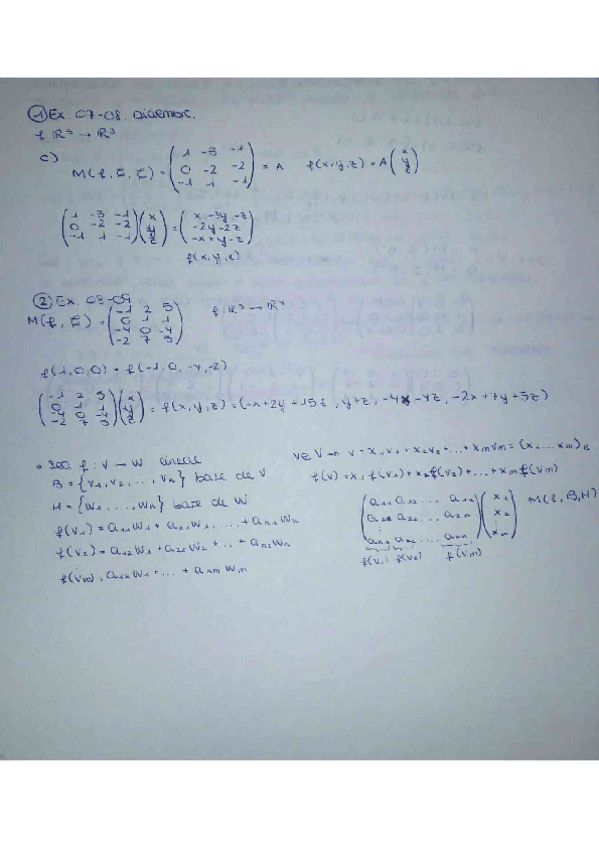 ① Ex. 07-08. Diciembre.
f: ℝ³ → ℝ³
c)
M(f, C, C) = (1 -3 -1 / 0 -2 -2 / -1 1 -1) = A f(x,y,z) = A (x / y / z)
(1 -3 -1 / 0 -2 -2 / -1 1 -1)(x / y / z) = (x -3y -z / -2y -2z / -x+y-z)
f(x,y,z)
② Ex. 08-09
M(f, C) = (-1 2 5 / 0 1 1 / -4 0 -4 / -2 7 5) f: ℝ³ → ℝ⁴
f(1,0,0) = f(-1,0,-4,-2)
(-1 2 5 / 0 1 1 / -4 0 -4 / -2 7 5)(x / y / z) = f(x,y,z) = (-x+2y+15z, y+z, -4x-4z, -2x+7y+5z)
f: V → W lineal
B = {v₁, v₂, ..., vₙ} base de V
H = {w₁, ..., wₙ} base de W
f(v₁) = a₁₁w₁ + a₂₁w₁ ... + aₙ₁wₙ
f(v₂) = a₁₂w₁ + a₂₂w₂ + ... + aₙ₂wₙ
f(vₘ) = a₁ₙw₁ + ... + aₙₘwₘ
v∈V → v = x₁v₁ + x₂v₂ + ... + xₘvₘ = (x₁...xₘ)_B
f(v) = x₁f(v₁) + x₂f(v₂) + ... + xₘf(vₘ)
(a₁₁ a₁₂ ... a₁ₙ / a₂ₙ / aₙ₁ aₙ₂ ... aₙₙ)(x₁ / x₂ / ⋮ / xₘ) M(f, B, H)
f(v₁) f(v₂) f(vₘ)